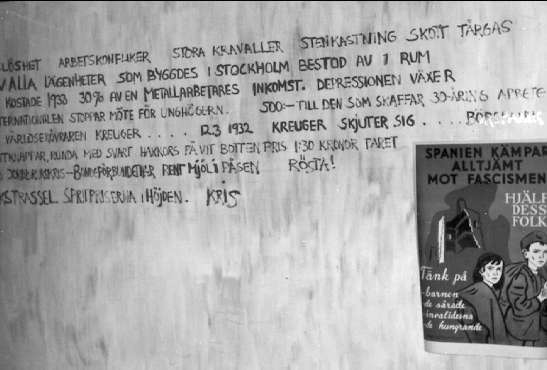 LÖSHET ARBETSKONFLIKER STORA KRAVALLER STENKASTNING SKOTT TÅRGAS
VALLA LÄGENHETER SOM BYGGDES I STOCKHOLM BESTOD AV 1 RUM
KOSTADE 1930 30% AV EN METALLARBETARES INKOMST. DEPRESSIONEN VÄXER
TERNATIONALEN STOPPAR MÖTE FÖR UNGHÖGERN. 500:- TILL DEN SOM SKAFFAR 30-ÅRING ARBETE
VÄRLDSERÖVRAREN KREUGER .... 12.3 1932 KREUGER SKJUTER SIG ....
KNAPPAR, RUNDA MED SVART HAKKORS PÅ VIT BOTTEN PRIS 1:30 KRONOR
BONDEFÖRBUNDET HAR RENT MJÖL I PÅSEN RÖSTA!
STRASSEL. SPRITPRISERNA I HÖJDEN. KRIS
SPANIEN KÄMPAR
ALLTJÄMT
MOT FASCISMEN
HJÄLP
DESS
FOLK
Tänk på
barnen
de sårade
invaliderna
de hungrande